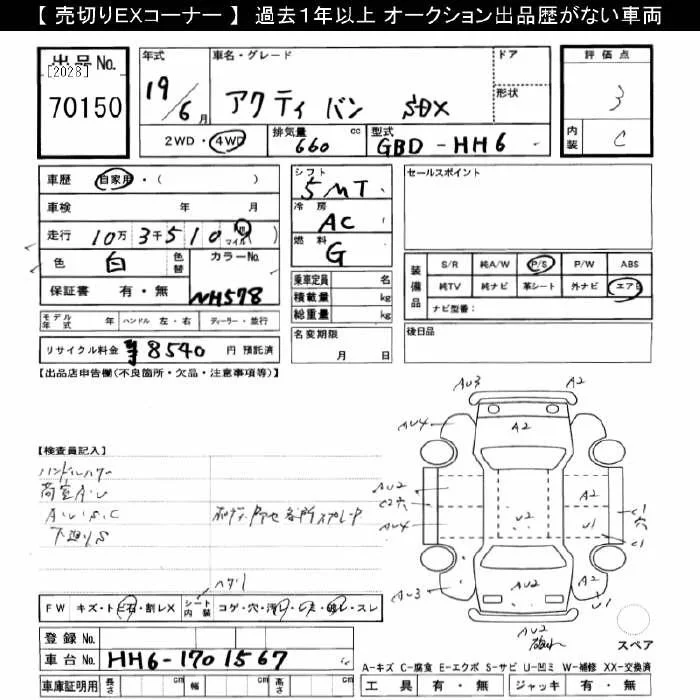 【 売切りEXコーナー 】 過去1年以上 オークション出品歴がない車両
出品No.
[2028]
70150
年式
19/6月
車名・グレード
アクティ バン SDX
ドア
形状
2WD・4WD
排気量
660 cc
型式
GBD-HH6
評価点
3
内装
C
車歴 自家用・( )
車検 年 月
走行 10万3千510 km マイル )
色 白 色替
カラーNo.
NH578
保証書 有・無
シフト
5MT
冷房
AC
燃料
G
乗車定員 名
積載量 kg
総重量 kg
名変期限
月 日
セールスポイント
装備品
S/R 純A/W P/S P/W ABS
純TV 純ナビ 革シート 外ナビ エアB
ナビ型番：
後日品
モデル年式 年 ハンドル 左・右 ディーラー・並行
リサイクル料金 ¥8540 円 預託済
【出品店申告欄(不良箇所・欠品・注意事項等)】
【検査員記入】
荷室A・U
A・U・S・C
下廻りS
AU3
A2
AU4
A2
AU2
C2穴
AU4
A2
U2
U1
C1
穴
C1
AU3
AU2
U1
AU2
スペア
FW キズ・トビ石・割レX シート内装 コゲ・穴・汚レ・破レ・スレ
登録No.
車台No. HH6-1701567
車庫証明用 長さ cm 幅 cm 高さ cm
A-キズ C-腐食 E-エクボ S-サビ U-凹ミ W-補修 XX-交換済
工具 有・無 ジャッキ 有・無